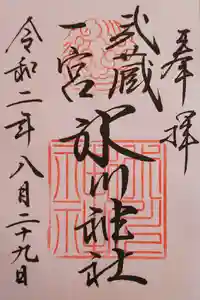 奉拝
武蔵
一宮
氷川神社
令和二年八月二十九日